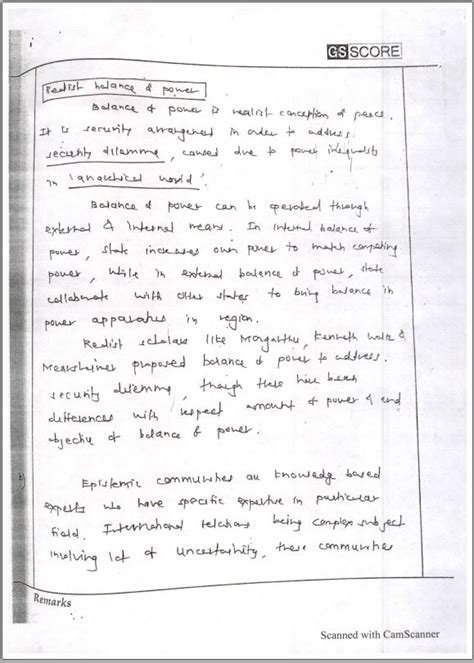 GSSCORE
Realist balance of power
Balance of power is realist conception of peace.
It is security arrangement in order to address
security dilemma, caused due to power inequality
in 'anarchical world'.
Balance of power can be operated through
external & internal means. In internal balance of
power, state increases own power to match competing
power, while in external balance of power, state
collaborate with other states to bring balance in
power apparatus in region.
Realist scholars like Morganthu, Kenneth waltz &
Mearsheimer proposed balance of power to address
security dilemma, though there have been
differences with respect amount of power & end
objective of balance of power.
Epistemic communities are knowledge based
experts who have specific expertise in particular
field. International relations being complex subject
involving lot of uncertainity, these communities
Remarks
Scanned with CamScanner